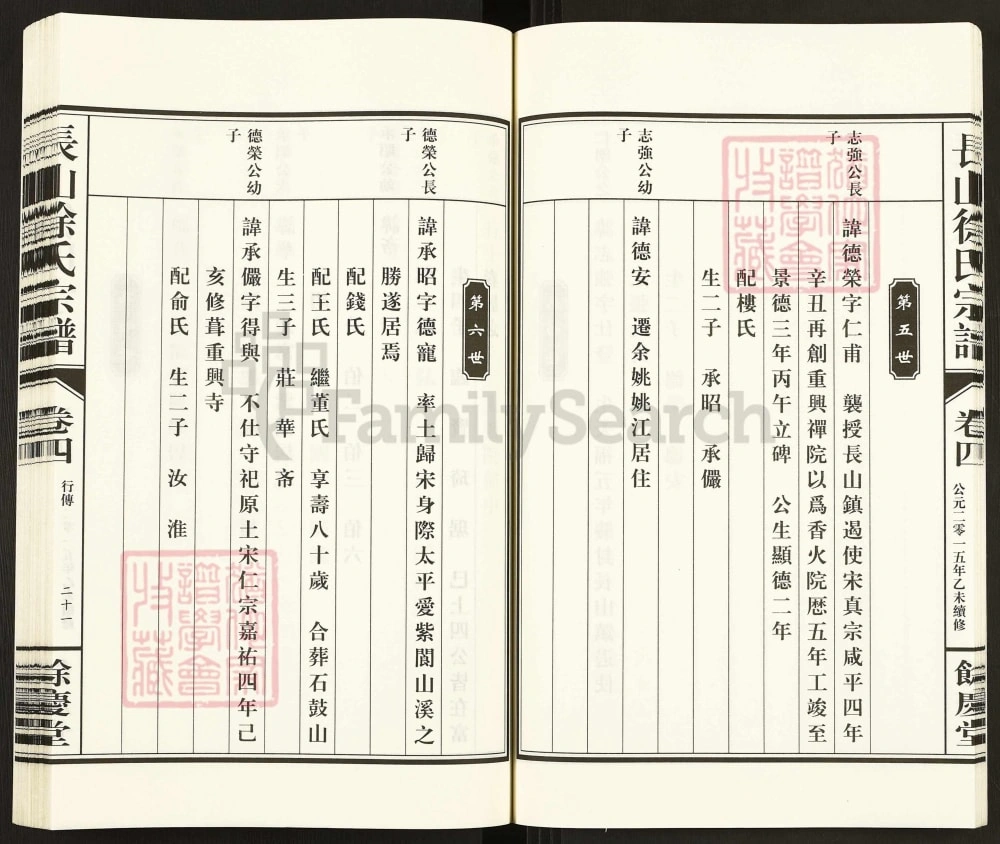 長山徐氏宗譜
卷四
公元二零一五年乙未續修
餘慶堂
第五世
志強公長
子
諱德榮字仁甫 襲授長山鎮遏使宋真宗咸平四年
辛丑再創重興禪院以爲香火院歷五年工竣至
景德三年丙午立碑 公生顯德二年
配樓氏
生二子 承昭 承儼
志強公幼
子
諱德安 遷余姚姚江居住
第六世
德榮公長
子
諱承昭字德寵 率土歸宋身際太平愛紫閬山溪之
勝遂居焉
配錢氏
配王氏 繼董氏 享壽八十歲 合葬石鼓山
生三子 莊 華 斋
德榮公幼
子
諱承儼字得與 不仕守祀原土宋仁宗嘉祐四年己
亥修葺重興寺
配俞氏 生二子 汝 淮
長山徐氏宗譜
卷四
行傳
二十一
餘慶堂
譜學會
收藏
譜學會
收藏
FamilySearch